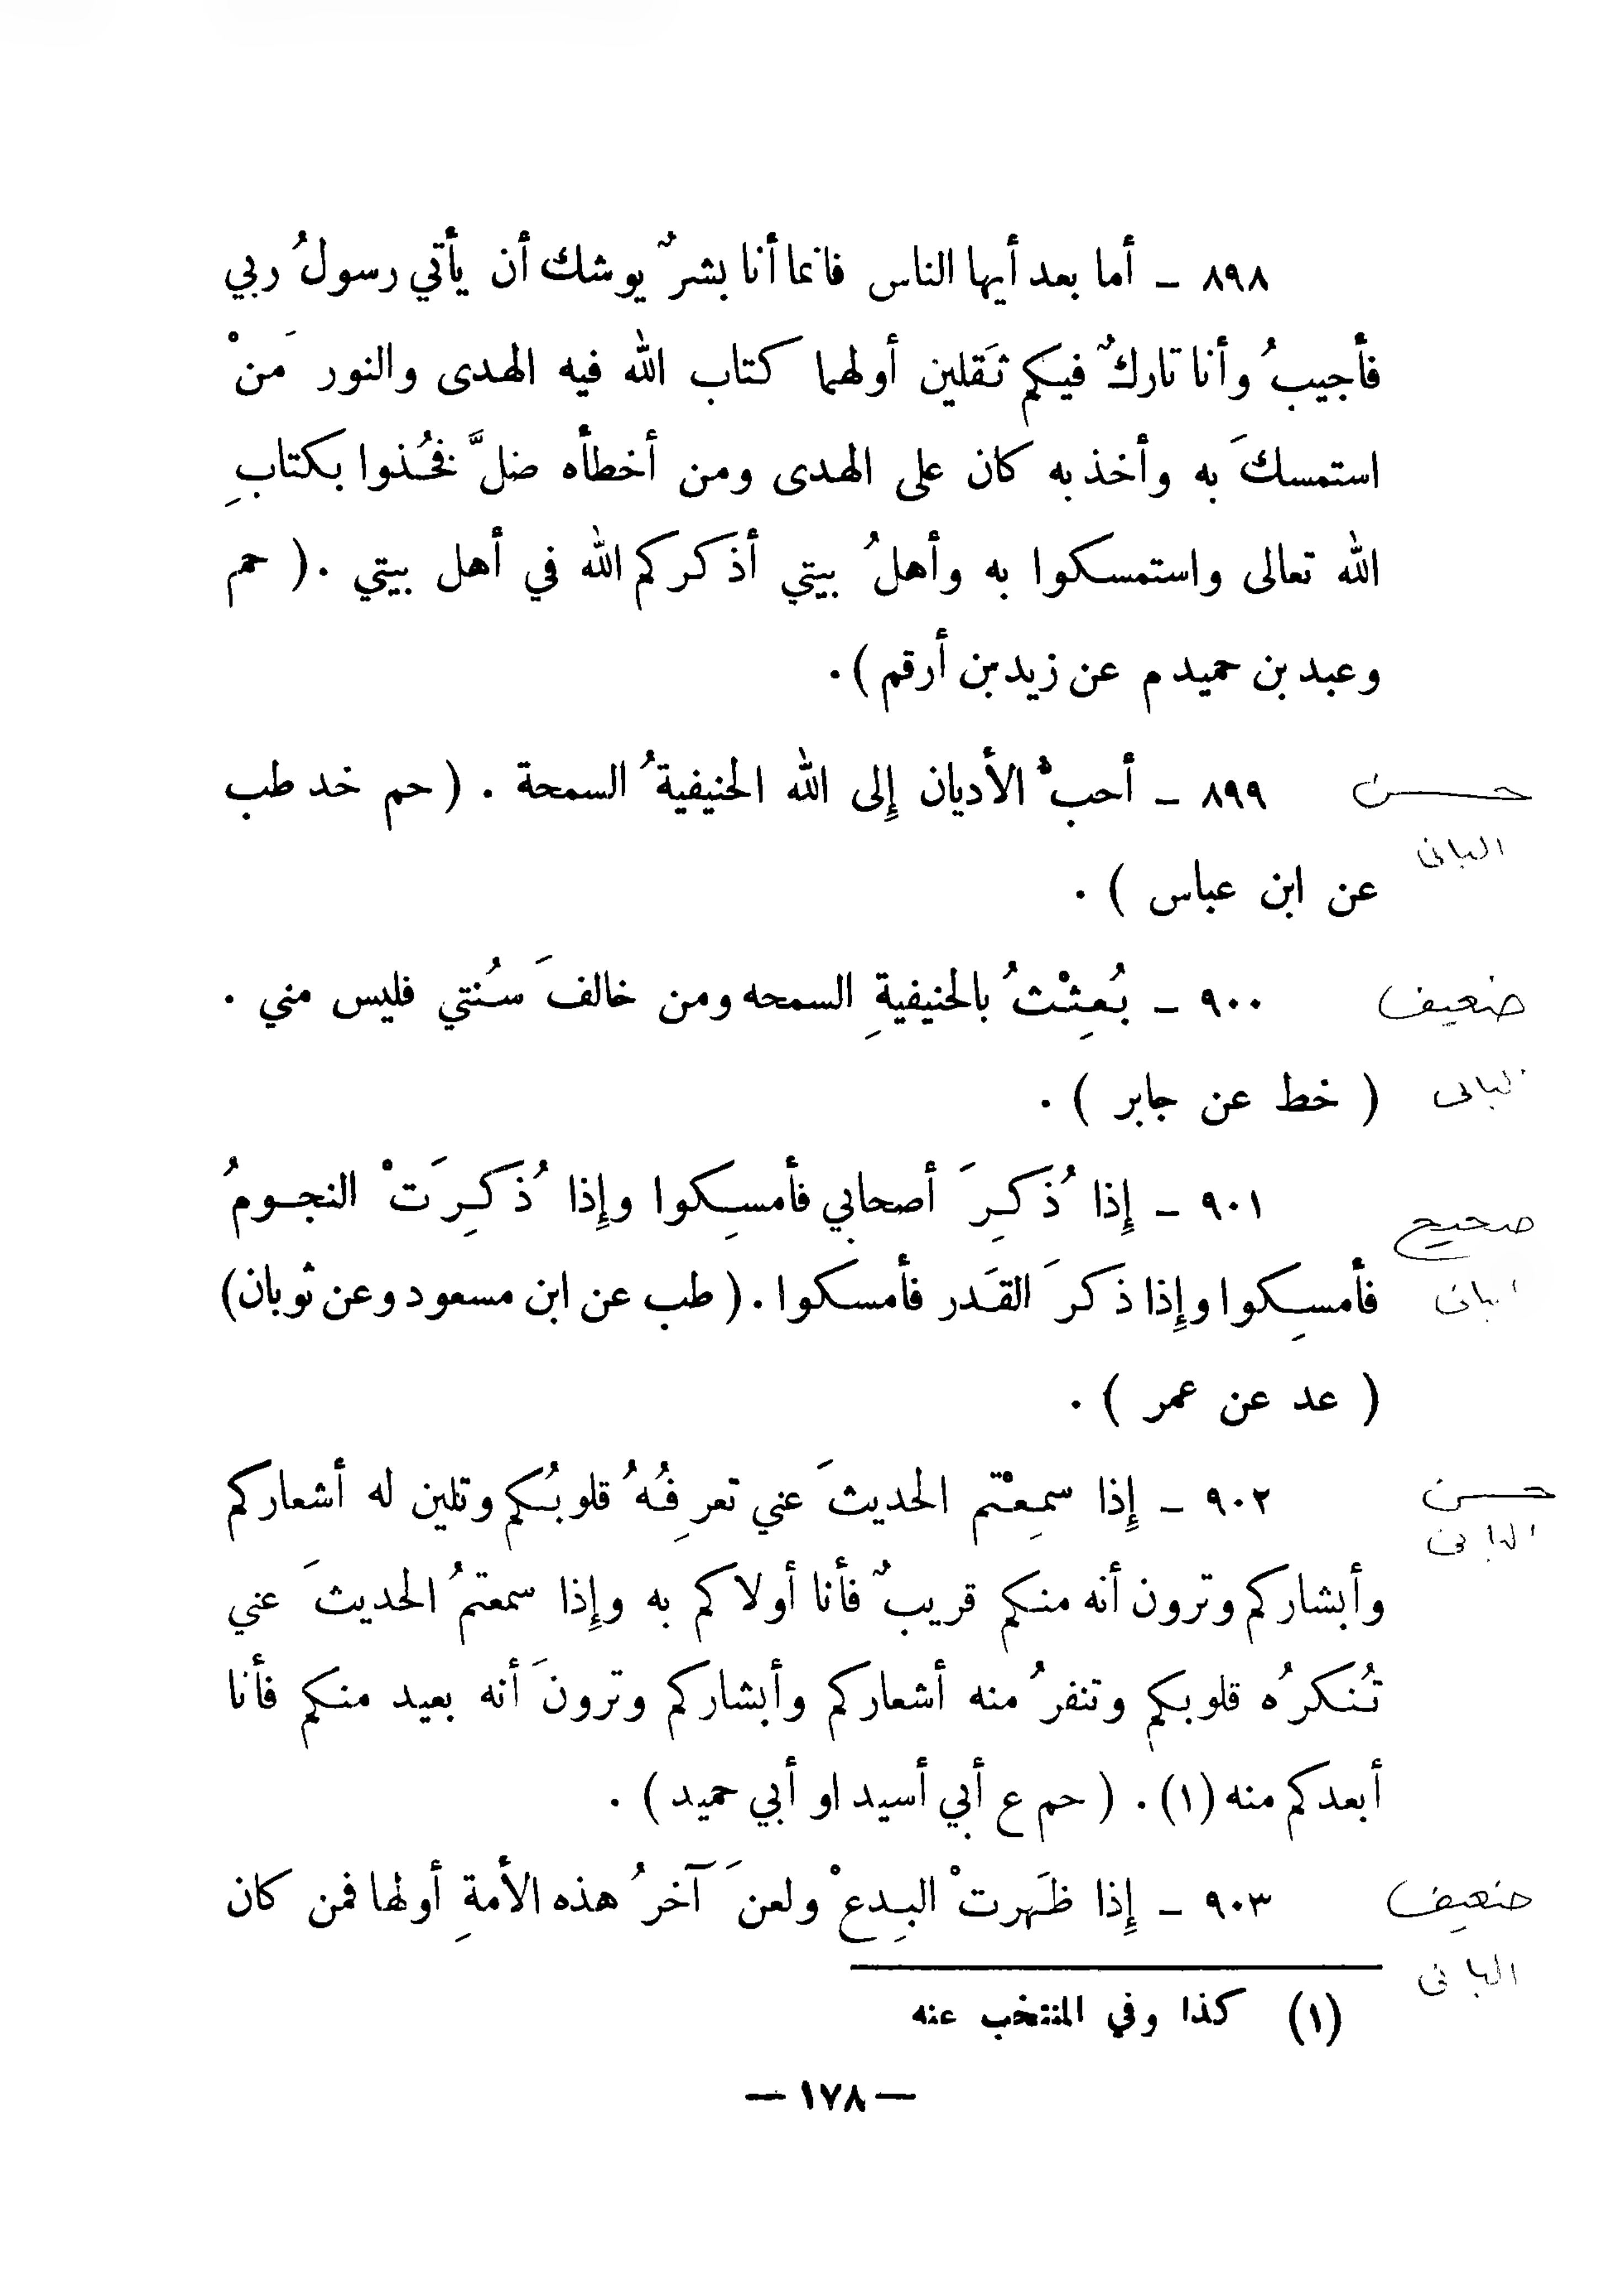 ٨٩٨ ـ أما بعد أيها الناس فانما أنا بشرٌ يوشك أن يأتي رسولُ ربي
فأجيبُ وأنا تاركٌ فيكم ثَقلين أولهما كتاب الله فيه الهدى والنور مَنْ
استمسكَ به وأخذ به كان على الهدى ومن أخطأه ضلَّ فخُذوا بكتابِ
الله تعالى واستمسكوا به وأهلُ بيتي أذكركم الله في أهل بيتي . ( حم
وعبد بن حميد م عن زيد بن أرقم ) .
٨٩٩ ـ أحبُّ الأديان إِلى الله الحنيفيةُ السمحة . ( حم خد طب
حسن
الباني
عن ابن عباس ) .
٩٠٠ ـ بُعِثْتُ بالحنيفيةِ السمحه ومن خالفَ سُنتي فليس مني .
ضعيف
( خط عن جابر ) .
الباني
٩٠١ ـ إِذا ذُكِرَ أصحابي فأمسِكوا وإِذا ذُكِرَتْ النجومُ
صحيح
فأمسِكوا وإِذا ذكرَ القَدر فأمسكوا . ( طب عن ابن مسعود وعن ثوبان )
الباني
( عد عن عمر ) .
٩٠٢ ـ إِذا سمِعْتم الحديثَ عني تعرِفُهُ قلوبُكم وتلين له أشعاركم
حسن
الباني
وأبشاركم وترون أنه منكم قريبٌ فأنا أولاكم به وإِذا سمعتمُ الحديثَ عني
تُنكرُه قلوبكم وتنفرُ منه أشعاركم وأبشاركم وترونَ أنه بعيد منكم فأنا
أبعدكم منه (١) . ( حم ع أبي أسيد او أبي حميد ) .
٩٠٣ ـ إِذا ظَهرتْ البِدعْ ولعنَ آخرُ هذه الأمةِ أولها فمن كان
ضعيف
الباني
(١) كذا وفي المنتخب عنه
— ١٧٨ —